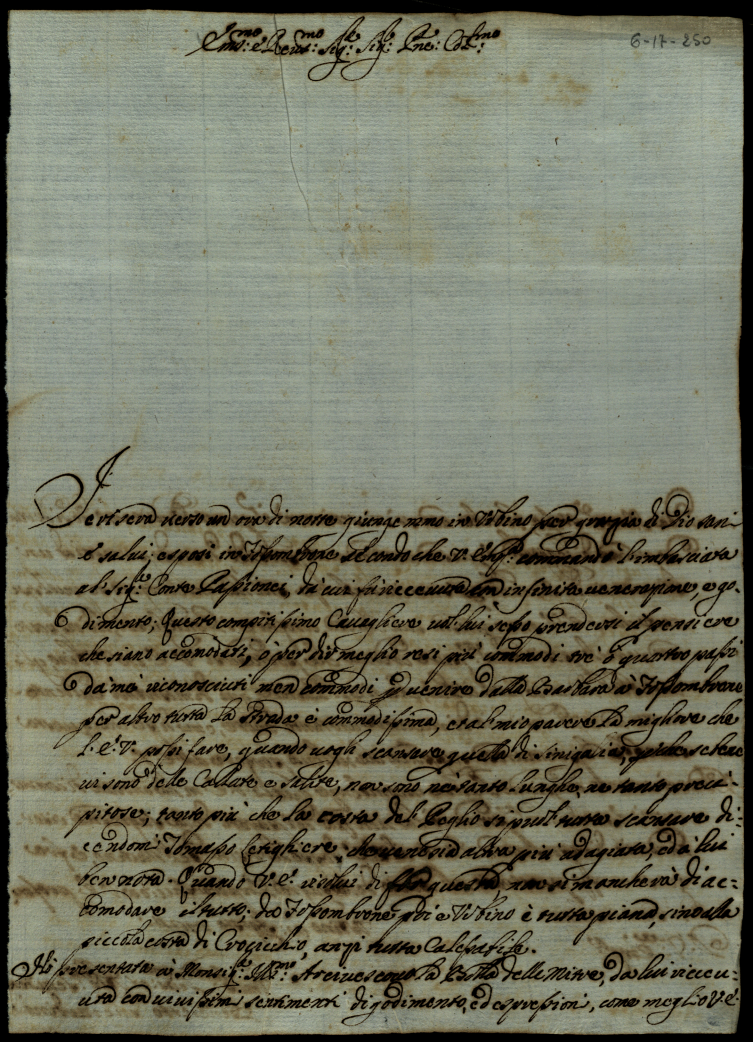 6-17-250
Em:mo e Reu:mo Sig:re Sig:re Pne: Col:mo
Ieri sera verso un ora di notte giungemmo in Vrbino per grazia di Dio sani
e salui; esposi in Fossombrone secondo che V. Em:a commandò l'imbasciata
al Sig:re Conte Passionei, da cui fù riceuuta con infinita venerazione, e go-
dimento; Questo compitissimo Caualiere uol lui stesso prendersi il pensiere
che siano accomodati, o per dir meglio resi più commodi trè ò quattro passi
da me riconosciuti men commodi p venire dalla à Fossombrone
per altro tutta la strada è commodissima, et al mio parere la migliore che
l'E. V. possi fare, quando uogli scansare quella di Sinigaglia, poiche se bene
ui sono delle Callate e salite, non sono nè tanto lunghe, ne tanto preci-
pitose; tanto più che la costa del Peglio si può tutta scansare di-
cendomi Tomasso che ue ne sia altra più adagiata, ed à lui
ben nota. Quando V. E. risolui di far questa, non si mancherà di ac-
comodare il tutto; da Fossombrone poi e Vrbino è tutta piana, sino alla
piccola costa di Crocicchio, anzi tutta Calessabile.
Hò presentata à Monsig:re Ill:mo Arciuescouo la delle Mitre, da lui riceu-
uta con uiuissimi sentimenti di godimento, ed espressioni, come meglio V. E.